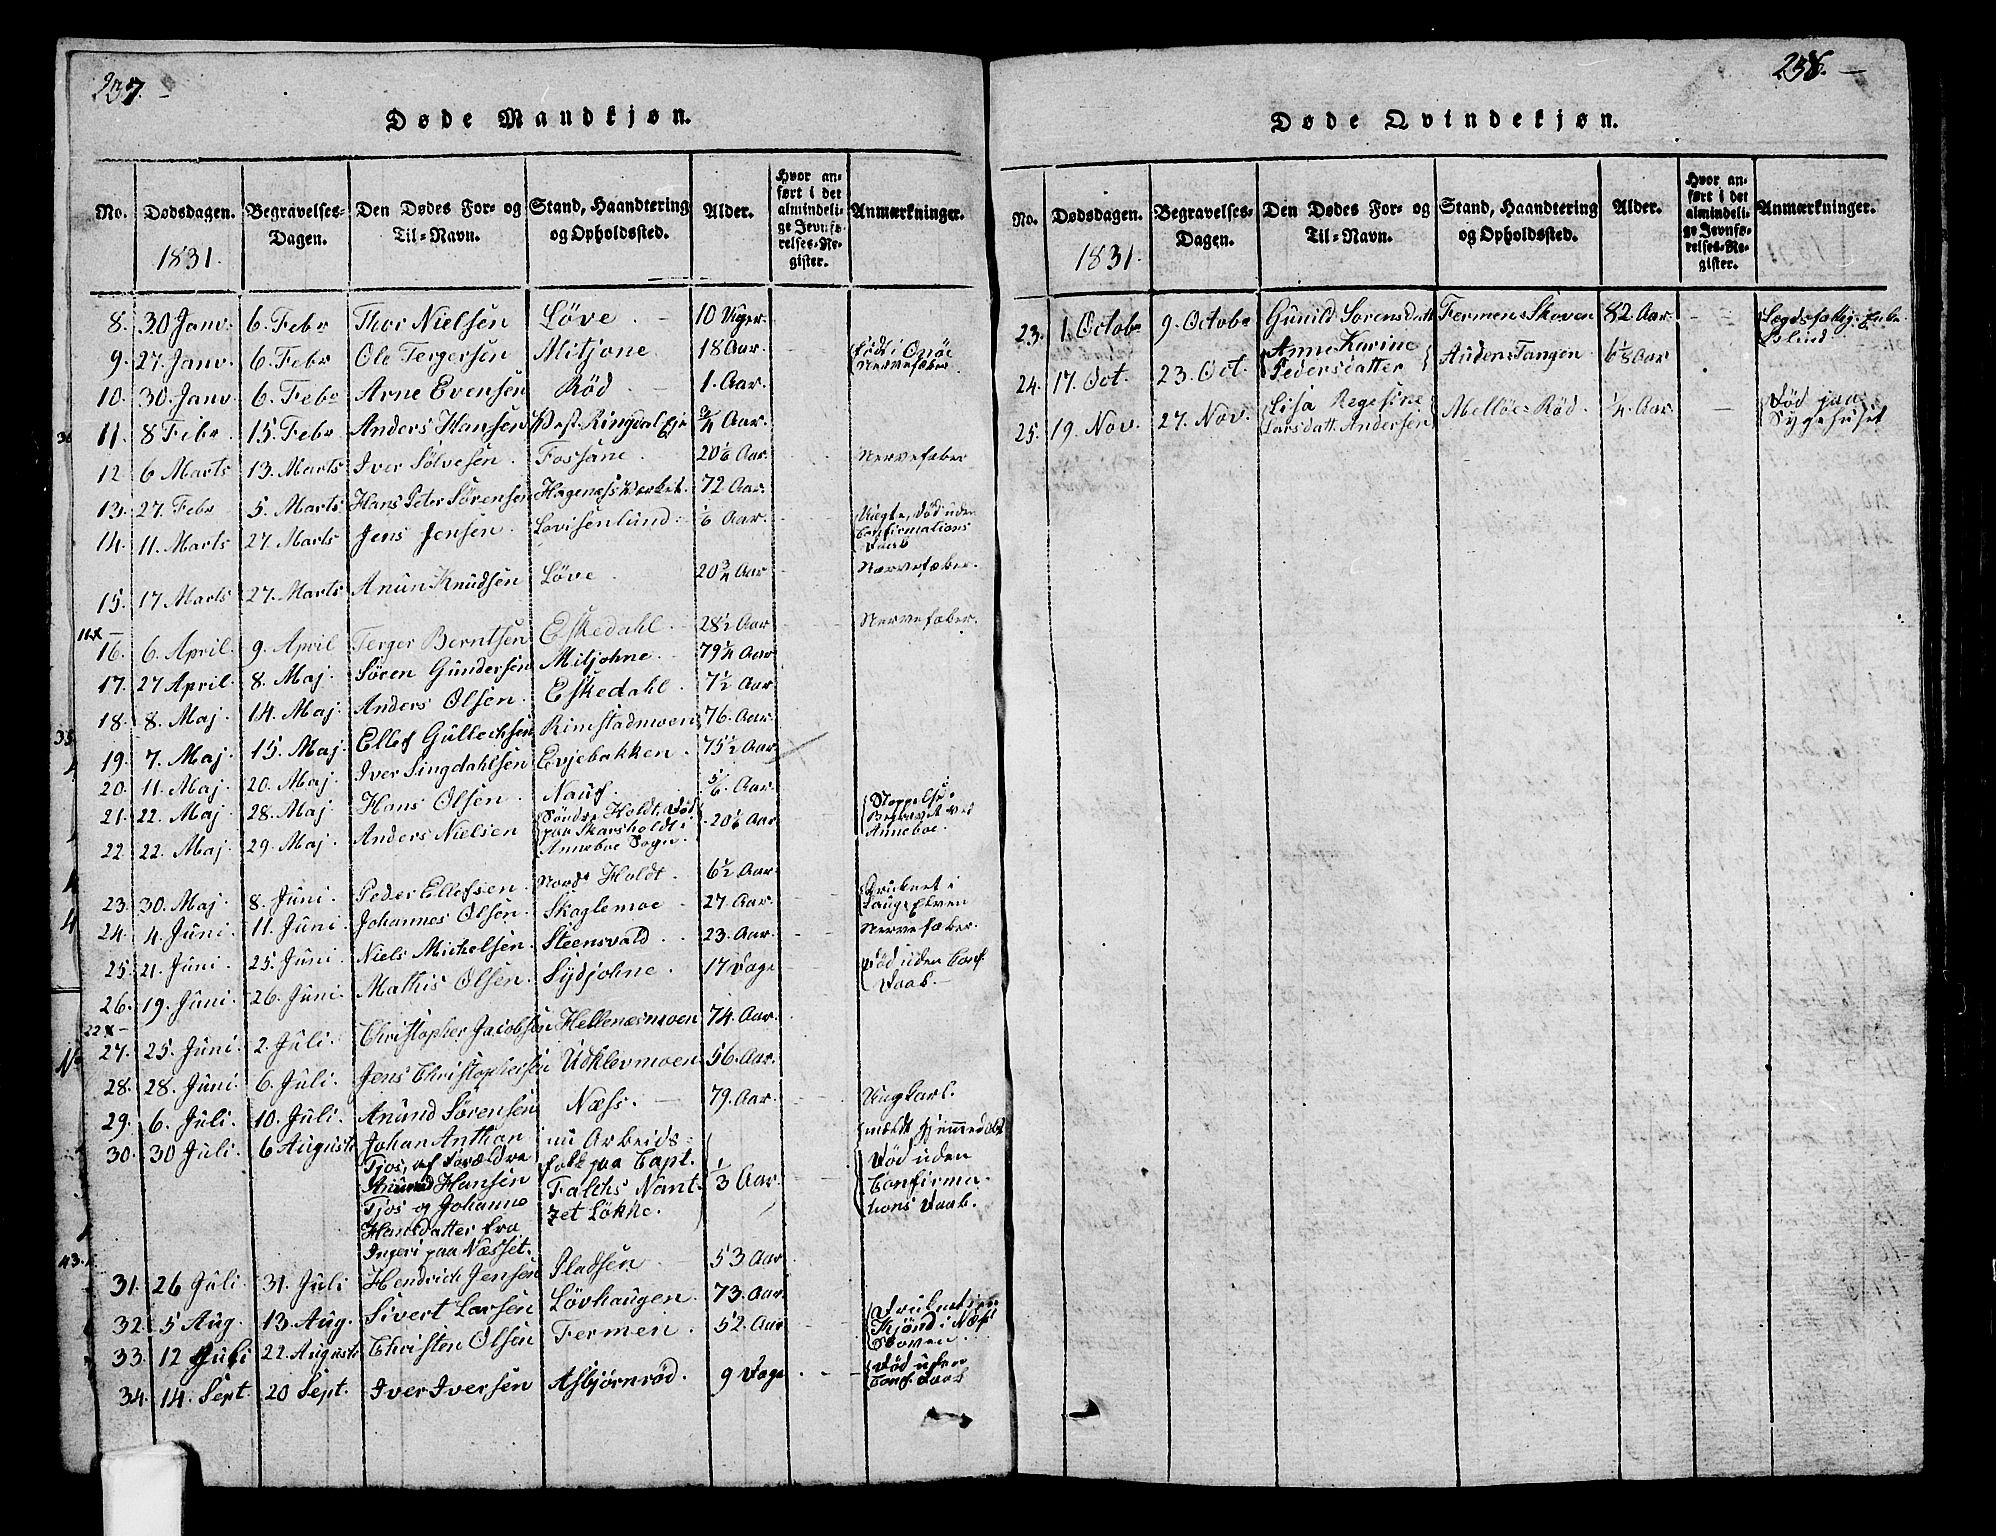 237.
Døde Mandkjøn.
No. Dødsdagen. 1831. Begravelses-Dagen. Den Dødes For- og Til-Navn. Stand, Haandtering og Opholdssted. Alder. Hvor anført i det almindelige Jevnførelses-Register. Anmærkninger.
8. 30 Janv. 6. Febr Thor Nielsen Løve. 10 Uger.
9. 27. Janv. 6. Febr Ole Tergersen Mitjone. 18 Aar. født i Onøe Nervefæber.
10. 30. Janv 6. Febr Arne Evensen Rød 1. Aar.
11. 8 Febr. 15. Febr Anders Hansen Vest-Ringdal Eje 3/4 Aar.
12 6 Marts 13. Marts Iver Sølvesen. Fossane. 20 1/6 Aar. Nervefæber
13. 27. Febr 5. Marts Hans Peter Sørensen Hagenæss Værket. 72 Aar.
14. 11. Marts 27 Marts Jens Jensen Lovisenlund. 1/6 Aar. Død uden Confirmations Daab
15. 17 Marts 27. Marts Anun Knudsen Løve. 20 3/4 Aar Nervefæber.
16. 6. April. 9. April Terger Berntsen Eskedahl. 28 1/2 Aar Nervefæber.
17. 27 April. 8. Maj. Søren Gundersen Mitjohne. 79 1/4 Aar.
18. 8. Maj. 14. Maj. Anders Olsen. Eskedahl. 7 1/2 Aar
19. 7. Maj. 15. Maj. Ellef Gullechsen Rimstadmoen 76. Aar
20. 11. Maj. 20. Maj. Iver Singdahlsen Evjebakken. 75 1/2 Aar
21. 22. Maj 28. Maj Hans Olsen. Nauf. 5/6. Aar.
22. 22. Maj. 29. Maj. Anders Nielsen Søndre Holdt, Død paa Skarsholdt i Anneboe Sogn. 20 1/6 Aar Begravet ved Anneboe.
23. 30. Maj. 8. Juni. Peder Ellefsen. Nordre Holdt. 6 1/2 Aar Druknet i Lauge Elven
24. 4. Juni 11. Juni Johannes Olsen. Skoglemoe 27. Aar Nervefæber.
25. 21. Juni 25. Juni Niels Michelsen. Steensvald. 23. Aar.
26. 19. Juni. 26. Juni Mathis Olsen. Sydjohne. 17 Dage Død uden Conf. Daab.
27. 25. Juni. 2. Juli. Christopher Jacobsen Hellenæsmoen 74. Aar.
28. 28. Juni 6. Juli. Jens Christophersen Udklevmoen 56. Aar.
29. 6. Juli. 10. Juli. Anund Sørensen Næss. 79. Aar. Ungkarl.
30. 30 Juli. 6 Augusti Johan Anthon Tjos, af Forældre Anund Hansen Tjos og Johanne Hansdatter fra Ingeri paa Næsset. nu Arbeidsfolk paa Capt. Falchs Nantzet Løkke. 1/3 Aar Død uden Confirmations Daab.
31. 26 Juli. 31. Juli Hendrich Jensen Pladsen 53 Aar
32. 5 Aug. 13 Aug. Sivert Larsen Løvhaugen. 73. Aar.
33. 12 Juli 22. Augusti Christen Olsen Fermen. 52. Aar
34. 14. Sept 20 Sept. Iver Iversen Asbjørnrød. 9 Dage Død uden Conf. Daab
238.
Døde Qvindekjøn.
No. Dødsdagen. 1831. Begravelses-Dagen. Den Dødes For- og Til-Navn. Stand, Haandtering og Opholdssted. Alder. Hvor anført i det almindelige Jevnførelses-Register. Anmærkninger.
23. 1. Octobr 9. Octobr Gunild Sorensdatt Fermen Skoven 82. Aar. Lægdsfattig Blind
24. 17. Oct. 23. Oct. Anne Karine Pedersdatter Audens Tangen. 6 1/8 Aar
25. 19. Nov. 27. Nov. Lisa Regesine Larsdatt. Andersen Melløe Rød. 1/4 Aar. Død paa Sygehuset